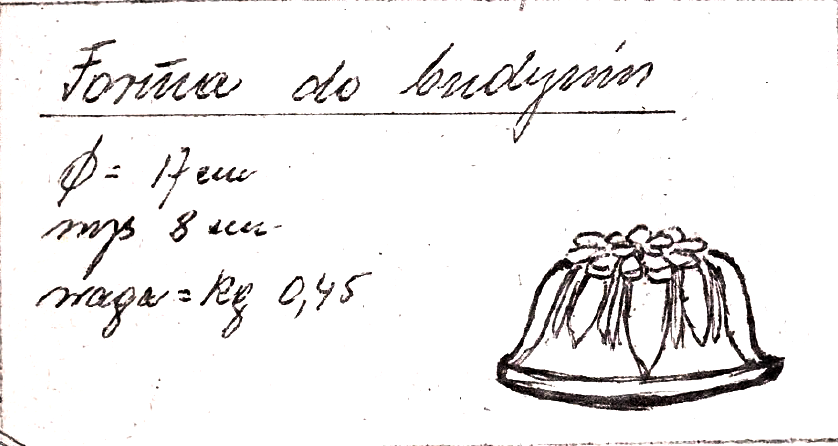 Forma do budyniu
φ = 17 cm
wys 8 cm
waga = kg 0,45